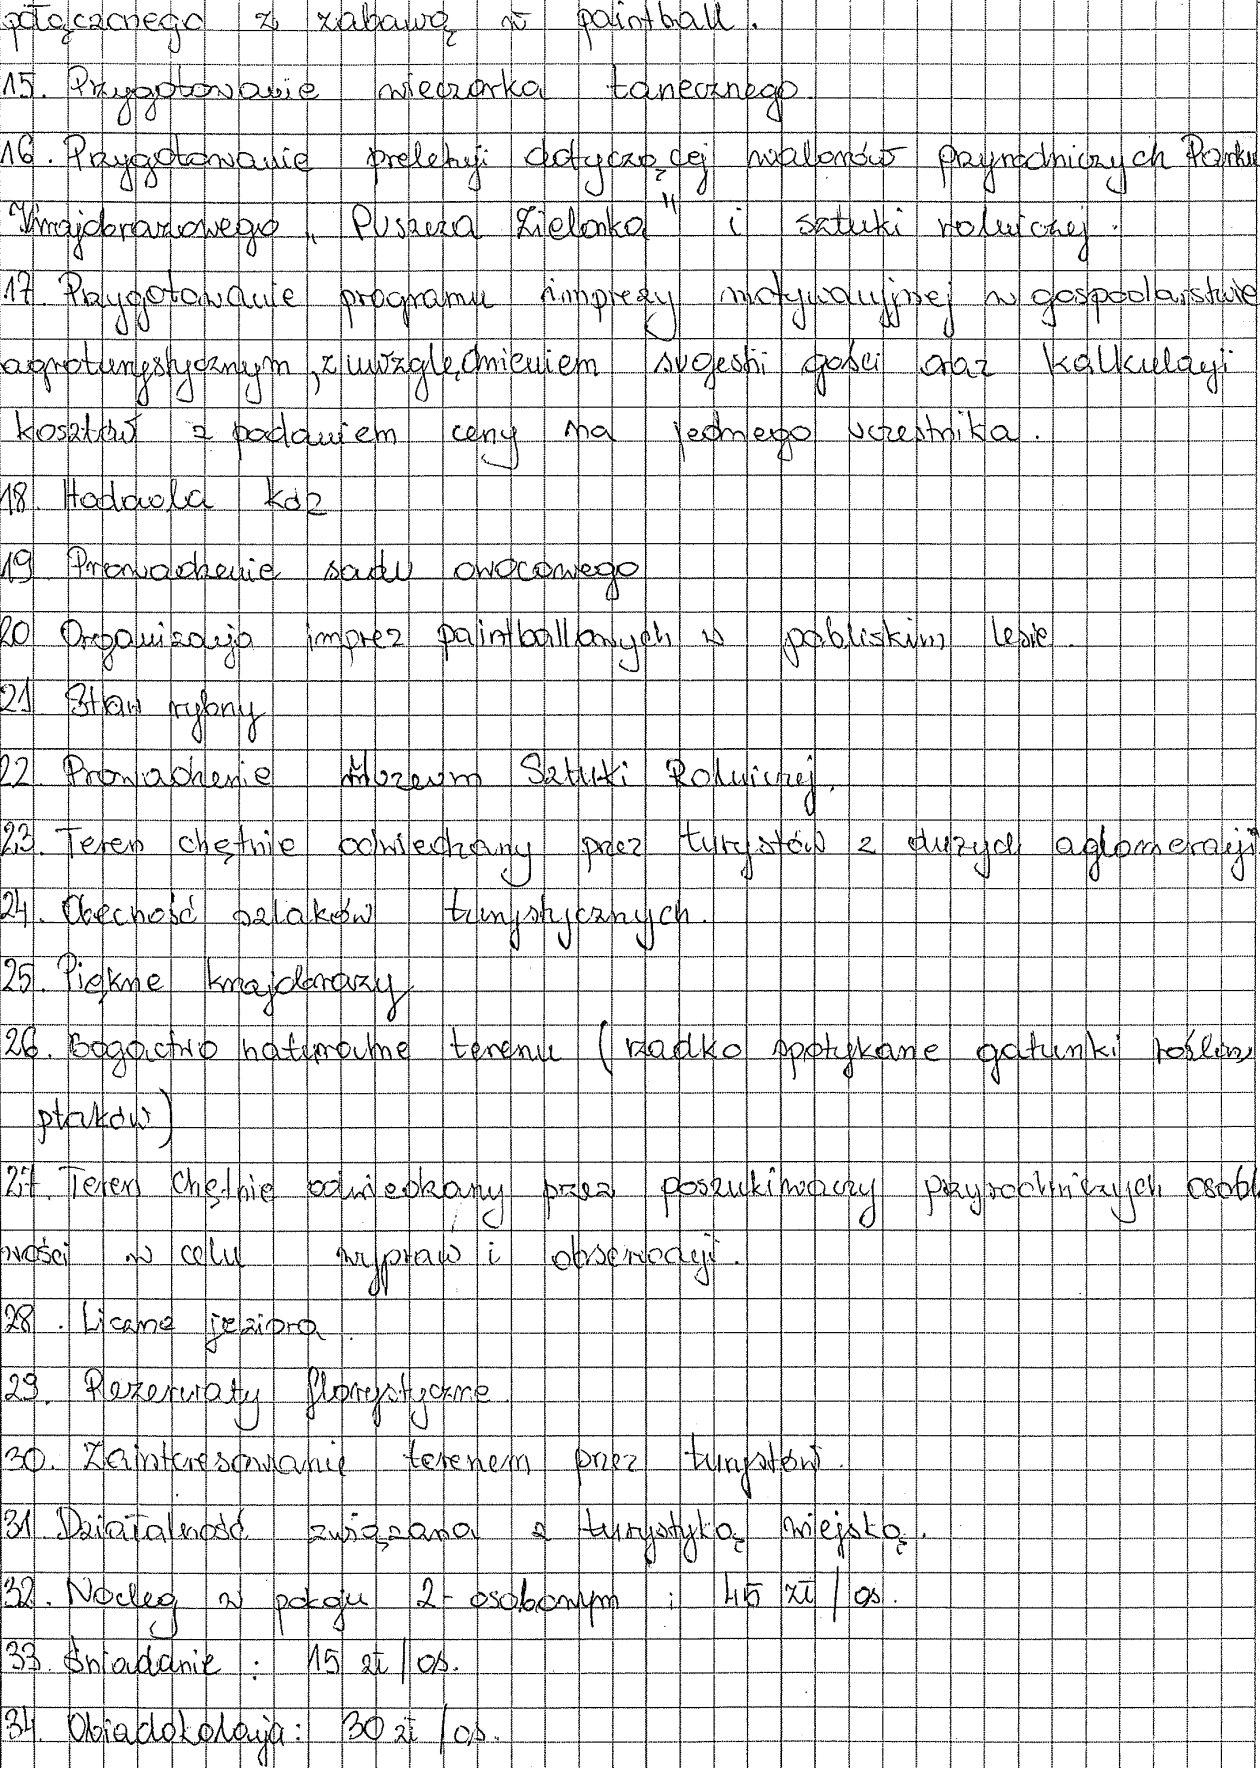 połączonego z zabawą w paintball.
15. Przygotowanie wieczorka tanecznego.
16. Przygotowanie prelekcji dotyczącej walorów przyrodniczych Parku
Krajobrazowego „Puszcza Zielonka" i sztuki rolniczej.
17. Przygotowanie programu imprezy motywacyjnej w gospodarstwie
agroturystycznym, z uwzględnieniem sugestii gości oraz kalkulacji
kosztów z podaniem ceny na jednego uczestnika.
18. Hodowla kóz
19 Prowadzenie sadu owocowego
20 Organizacja imprez paintballowych w pobliskim lesie.
21 Staw rybny
22. Prowadzenie Muzeum Sztuki Rolniczej.
23. Teren chętnie odwiedzany przez turystów z dużych aglomeracji
24. Obecność szlaków turystycznych.
25. Piękne krajobrazy
26. Bogactwo naturalne terenu (rzadko spotykane gatunki roślin,
ptaków)
27. Teren chętnie odwiedzany przez poszukiwaczy przyrodniczych osobl
wości w celu wypraw i obserwacji.
28. Liczne jeziora.
29. Rezerwaty florystyczne.
30. Zainteresowanie terenem przez turystów.
31 Działalność związana z turystyką wiejską.
32. Nocleg w pokoju 2-osobowym : 45 zł/os.
33. Śniadanie : 15 zł/os.
34. Obiadokolacja: 30 zł/os.